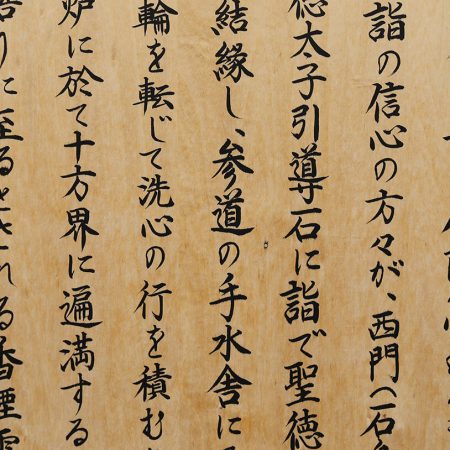 詣の信心の方々が、西門(石
徳太子引導石に詣で聖徳
結縁し、参道の手水舎に
輪を転じて洗心の行を積む
炉に於て十方界に遍満する
りに至るとされる香煙